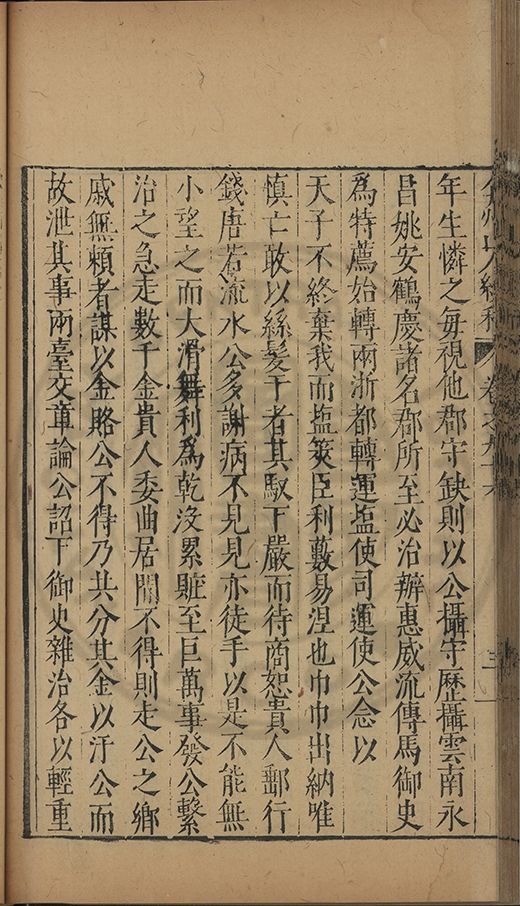 年生憐之每視他郡守缺則以公攝守歷攝雲南永
昌姚安鶴慶諸名郡所至必治辦惠威流傳馬御史
爲特薦始轉兩浙都轉運鹽使司運使公念以
天子不終棄我而鹽筴臣利藪易涅也巾巾出納唯
慎亡敢以絲髮干者其馭下嚴而待商恕貴人郵行
錢唐若流水公多謝病不見見亦徒手以是不能無
小望之而大滑舞利爲乾沒累賍至巨萬事發公繫
治之急走數千金貴人委曲居間不得則走公之鄉
戚無賴者謀以金賂公不得乃共分其金以汙公而
故泄其事兩臺交章論公詔下御史雜治各以輕重